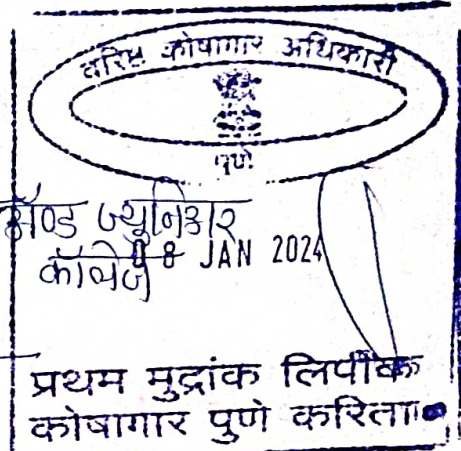 वरिष्ठ कोषागार अधिकारी
पुणे
ॲण्ड ज्युनिअर
कॉलेज
08 JAN 2024
प्रथम मुद्रांक लिपीक
कोषागार पुणे करिता